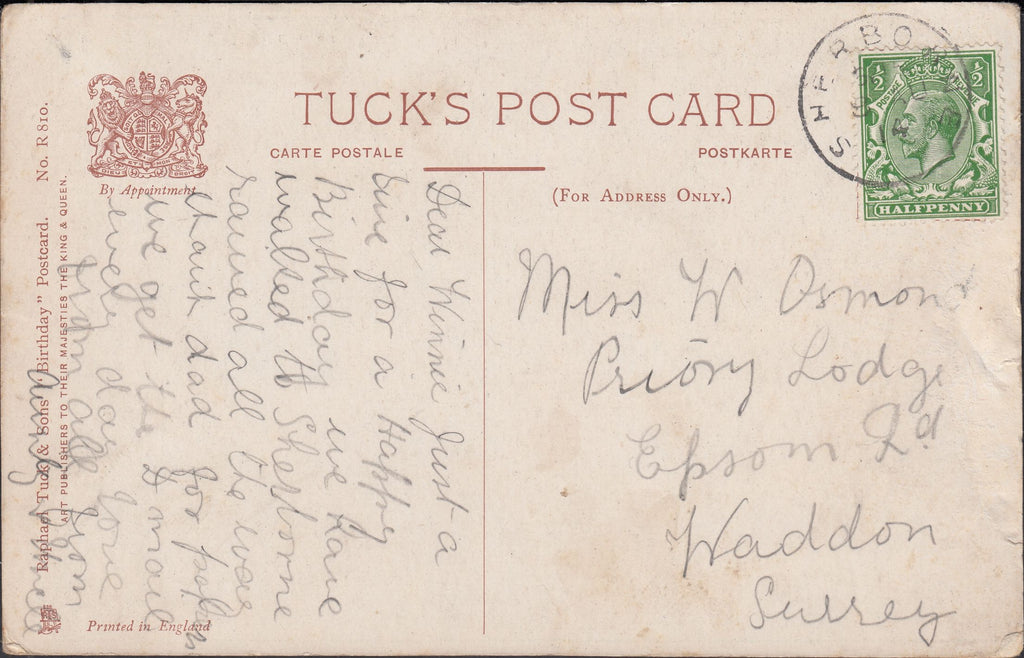 TUCK'S POST CARD
CARTE POSTALE
POSTKARTE
(For Address Only.)
By Appointment
SHERBO
½ ½
POSTAGE
HALFPENNY
Raphael Tuck & Sons' "Birthday" Postcard. No. R 810.
ART PUBLISHERS TO THEIR MAJESTIES THE KING & QUEEN.
Printed in England
Dear Winnie Just a
line for a Happy
Birthday we have
walked to Sherborne
rained all the way
thank dad for
we get the mail
every day love
from all from
Miss W Osmond
Priory Lodge
Epsom Rd
Waddon
Surrey